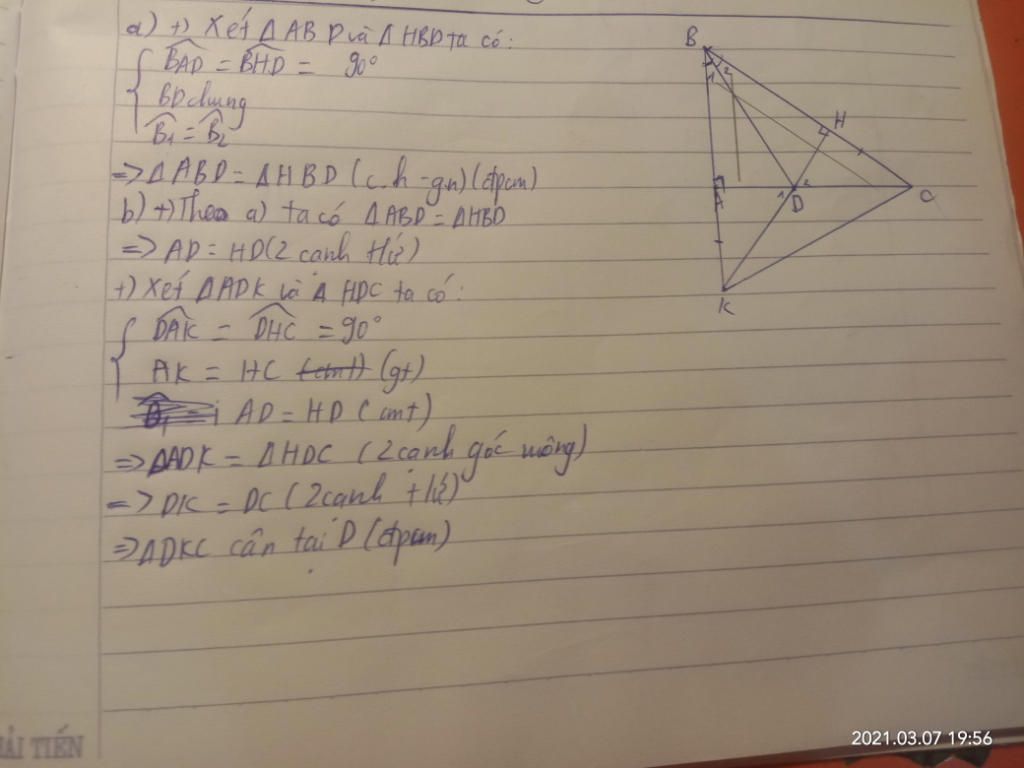 a) +) Xét ΔABD và ΔHBD ta có:
BAD = BHD = 90°
BD chung
B1 = B2
=> ΔABD = ΔHBD (c.h - g.n) (đpcm)
b) +) Theo a) ta có ΔABD = ΔHBD
=> AD = HD (2 cạnh tứ)
+) Xét ΔADK và Δ HDC ta có:
DAK = DHC = 90°
AK = HC (cmt) (gt)
AD = HD (cmt)
=> ΔADK = ΔHDC (2 cạnh góc vuông)
=> DK = DC (2 cạnh tứ)
=> ΔDKC cân tại D (đpcm)
B
1 2
H
A
1 2
D
C
K
ẢI TIẾN
2021.03.07 19:56